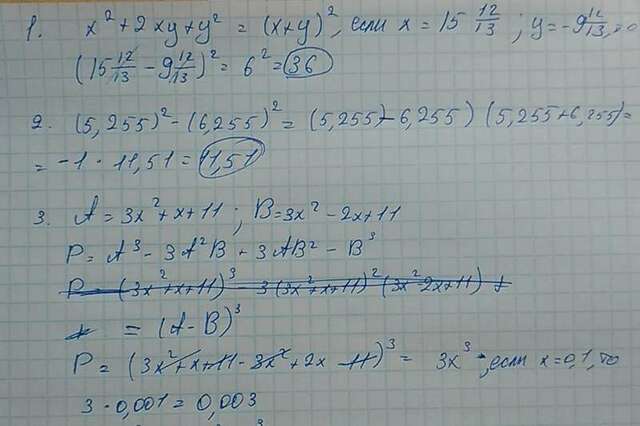 1. x² + 2xy + y² = (x+y)², если x = 15 12/13 ; y = -9 12/13, то
(15 12/13 - 9 12/13)² = 6² = 36
2. (5,255)² - (6,255)² = (5,255 - 6,255) (5,255 + 6,255) =
= -1 · 11,51 = 11,51
3. A = 3x² + x + 11 ; B = 3x² - 2x + 11
P = A³ - 3A²B + 3AB² - B³
P = (3x² + x + 11)³ - 3(3x² + x + 11)² (3x² - 2x + 11) +
+ = (A - B)³
P = (3x² + x + 11 - 3x² + 2x - 11)³ = 3x³, если x = 0,1, то
3 · 0,001 = 0,003